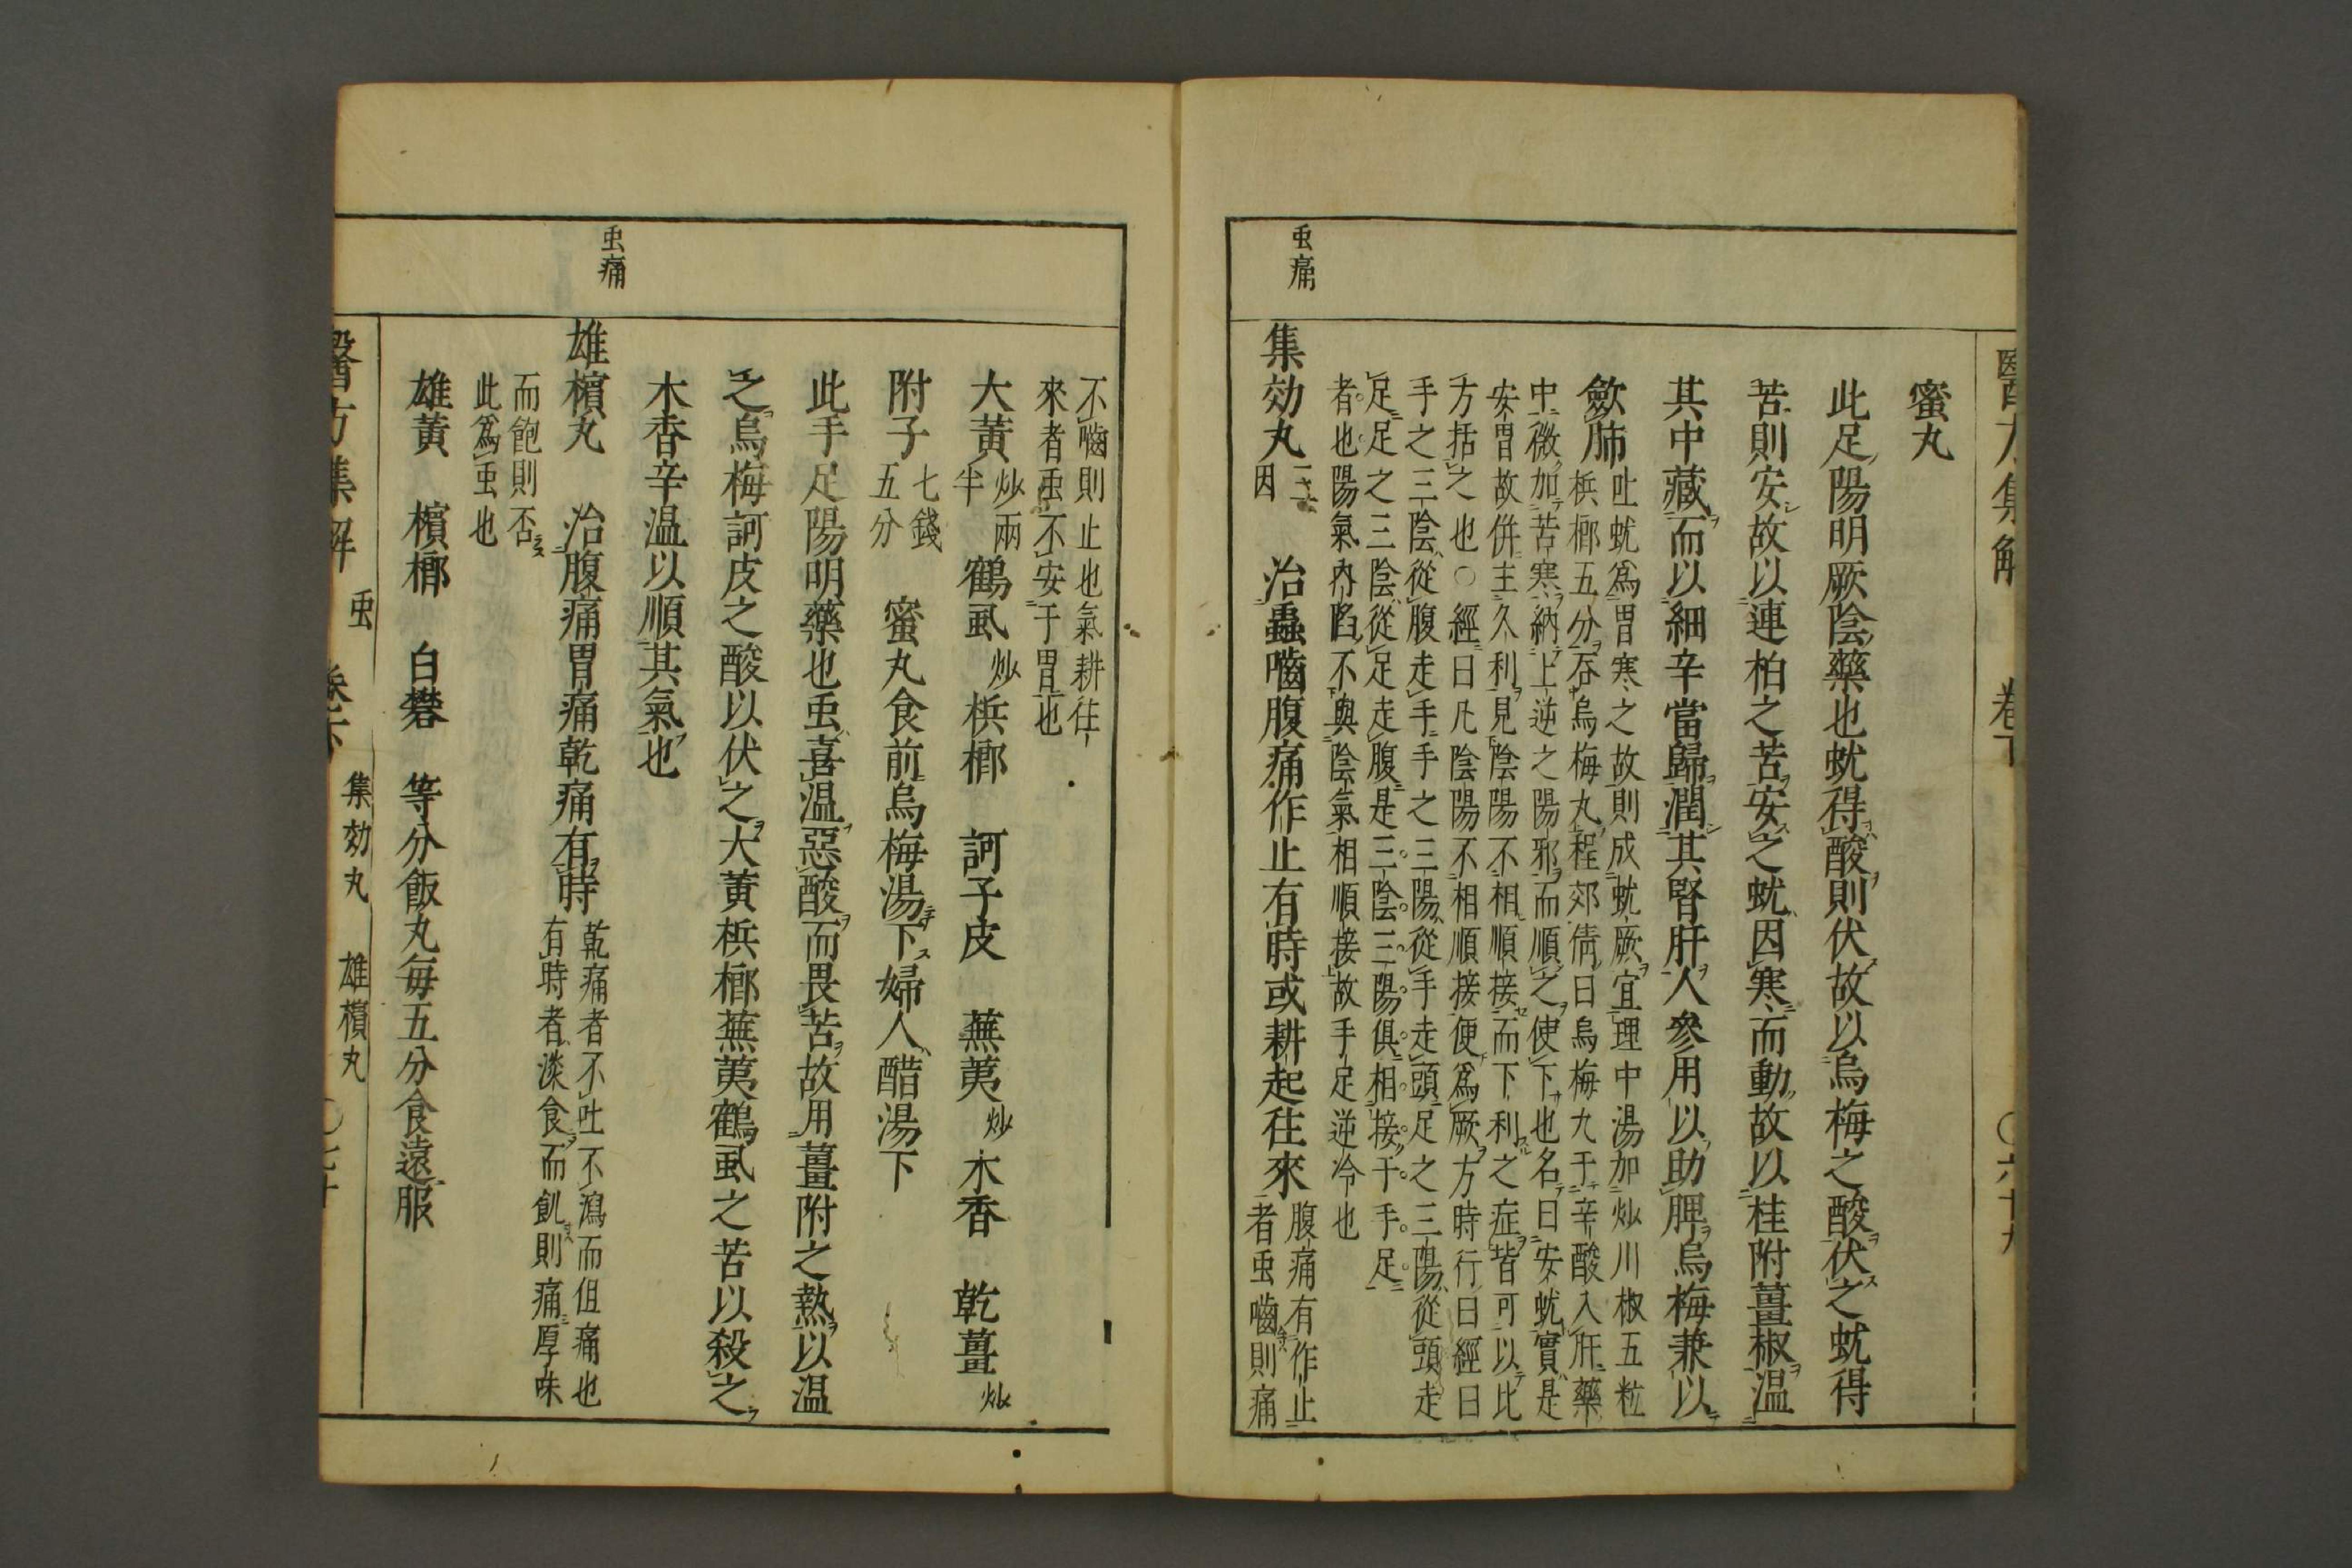 醫方集解 卷下 〇六十九
蜜丸
此足陽明厥陰藥也蚘得酸則伏故以烏梅之酸伏之蚘得
苦則安故以連柏之苦安之蚘因寒而動故以桂附薑椒温
其中藏而以細辛當歸潤其腎肝人參用以助脾烏梅兼以
歛肺
吐蚘爲胃寒之故則成蚘厥宜理中湯加炒川椒五粒
梹榔五分吞烏梅丸程郊倩曰烏梅丸于辛酸入肝藥
中微加苦寒納上逆之陽邪而順之使下也名曰安蚘實是
安胃故併主久利見陰陽不相順接而下利之症皆可以此
方括之也〇經曰凡陰陽不相順接便爲厥方時行曰經曰
手之三陰從腹走手手之三陽從手走頭足之三陽從頭走
足足之三陰從足走腹是三陰三陽俱相接于手足
者也陽氣內陷不與陰氣相順接故手足逆冷也
虫痛
集効丸
三因
治蟲嚙腹痛作止有時或耕起往來
腹痛有作止
者虫嚙則痛
不嚙則止也氣耕往
來者虫不安于胃也
大黃
炒兩
半
鶴虱
炒
梹榔 訶子皮 蕪荑
炒
木香 乾薑
炒
附子
七錢
五分
蜜丸食前烏梅湯下婦人醋湯下
此手足陽明藥也虫喜温惡酸而畏苦故用薑附之熱以温
之烏梅訶皮之酸以伏之大黃梹榔蕪荑鶴虱之苦以殺之
木香辛温以順其氣也
虫痛
雄檳丸 治腹痛胃痛乾痛有時
乾痛者不吐不瀉而但痛也
有時者淡食而飢則痛厚味
而飽則否
此爲虫也
雄黃 檳榔 白礬 等分飯丸每五分食遠服
醫方集解 虫 卷下 集効丸 雄檳丸 〇七十